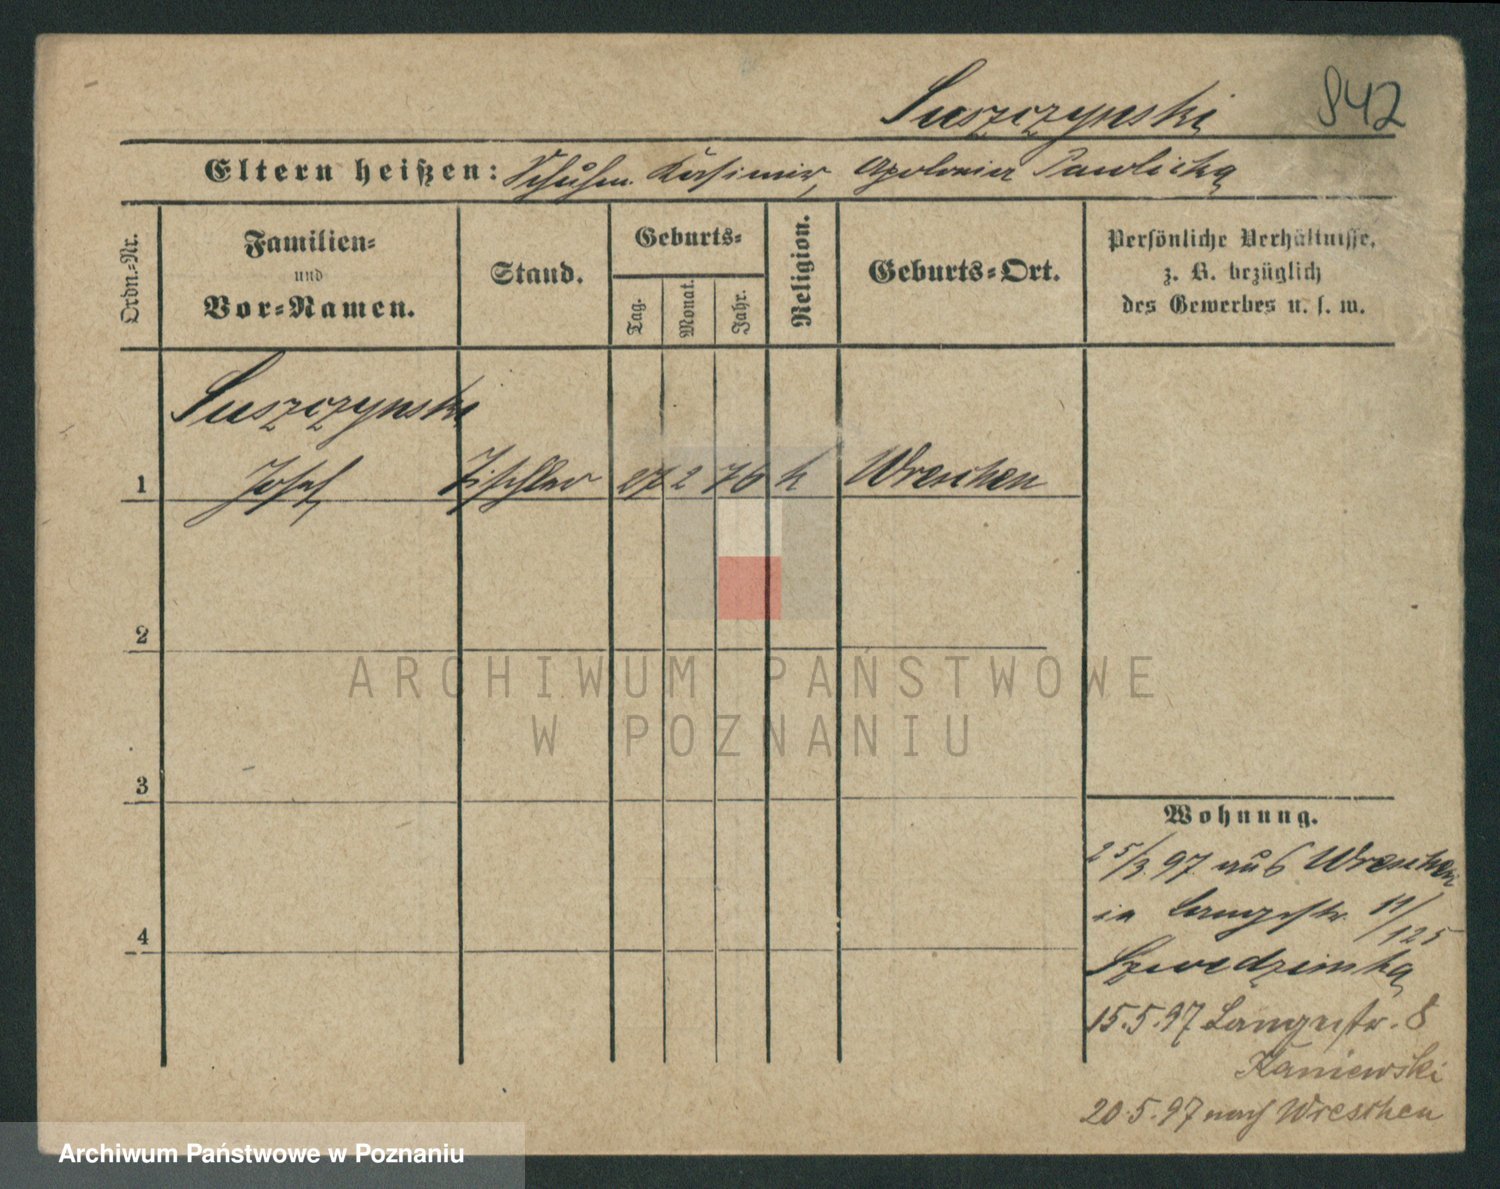 Suszczynski 842
Eltern heißen: Schuhm. Kasimir, Apolonia Pawlicka
Ordn.-Nr.
Familien-
und
Vor-Namen.
Stand.
Geburts-
Tag.
Monat.
Jahr.
Religion.
Geburts-Ort.
Persönliche Verhältnisse,
z. B. bezüglich
des Gewerbes u. s. w.
Suszczynski
1 Josef Tischler 27 2 76 k Wreschen
2
3
4
ARCHIWUM PAŃSTWOWE
W POZNANIU
Wohnung.
25/3 97 aus Wreschen
in Langestr. 11/125
15.5.97 Langestr. 8
Kaniewski
20.5.97 nach Wreschen
Archiwum Państwowe w Poznaniu